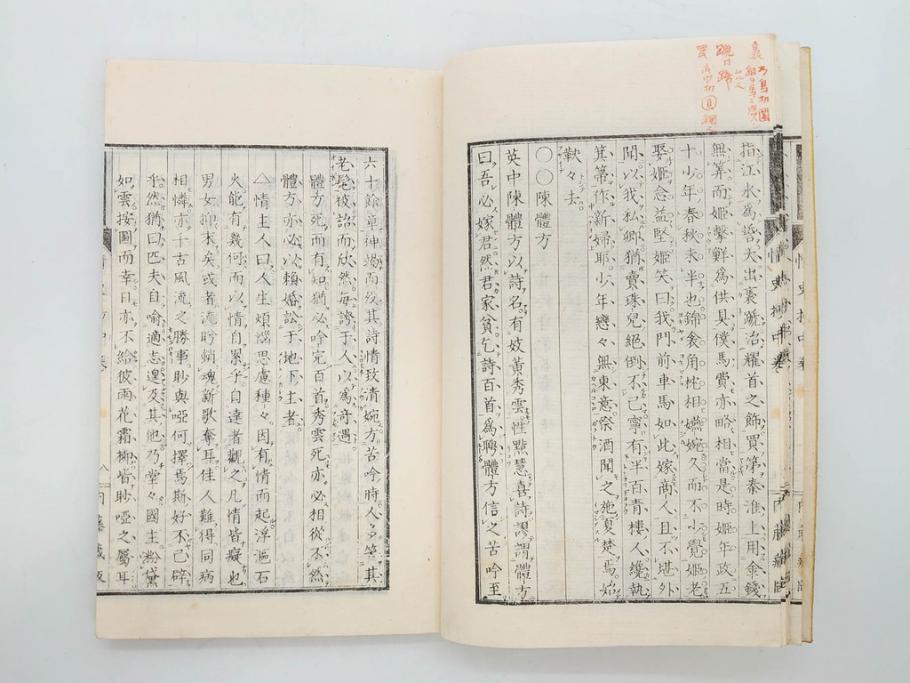 指江水爲誓夫出裹蹏冶耀首之飾買第秦淮上用金錢
無筭而姬擊鮮爲供具僕馬費亦略相當是時姬年政五
十少年春秋未半也錦衾角枕相嬿婉久而不小覺姬老
娶姬念益堅姬笑曰我門前車馬如此嫁商人且不堪外
聞以我私卿猶賣珠兒絕倒不已寧有半百青樓人纔執
箕箒作新婦耶少年戀々無東意祭酒聞之施夏楚焉始
軮々去
〇〇陳體方
英中陳體方以詩名有妓黃秀雲性黠慧喜詩謬謂體方
曰吾必嫁君然君家貧乞詩百首爲聘體方信之苦吟至
情史抄中卷
六十餘章神竭而歿其詩情致清婉方苦吟時人多笑其
老髦被詒而欣然每誇于人以爲奇遇
體方死而有知猶必吟完百首秀雲死亦必相從不然
體方亦必以賴婚訟于地下主者
△情主人曰人生煩惱思慮種々因有情而起浮漚石
火能有幾何而以情自累乎自達者觀之凡情皆癡也
男女抑末矣或者流盻銷魂新歌奪耳佳人難得同病
相憐亦千古風流之勝事眇與啞何擇焉斯好不已辟
乎然猶曰匹夫自喻適志遑及其他乃堂々國主粉黛
如雲按圖而幸日亦不給彼雨花霜柳皆眇啞之屬耳